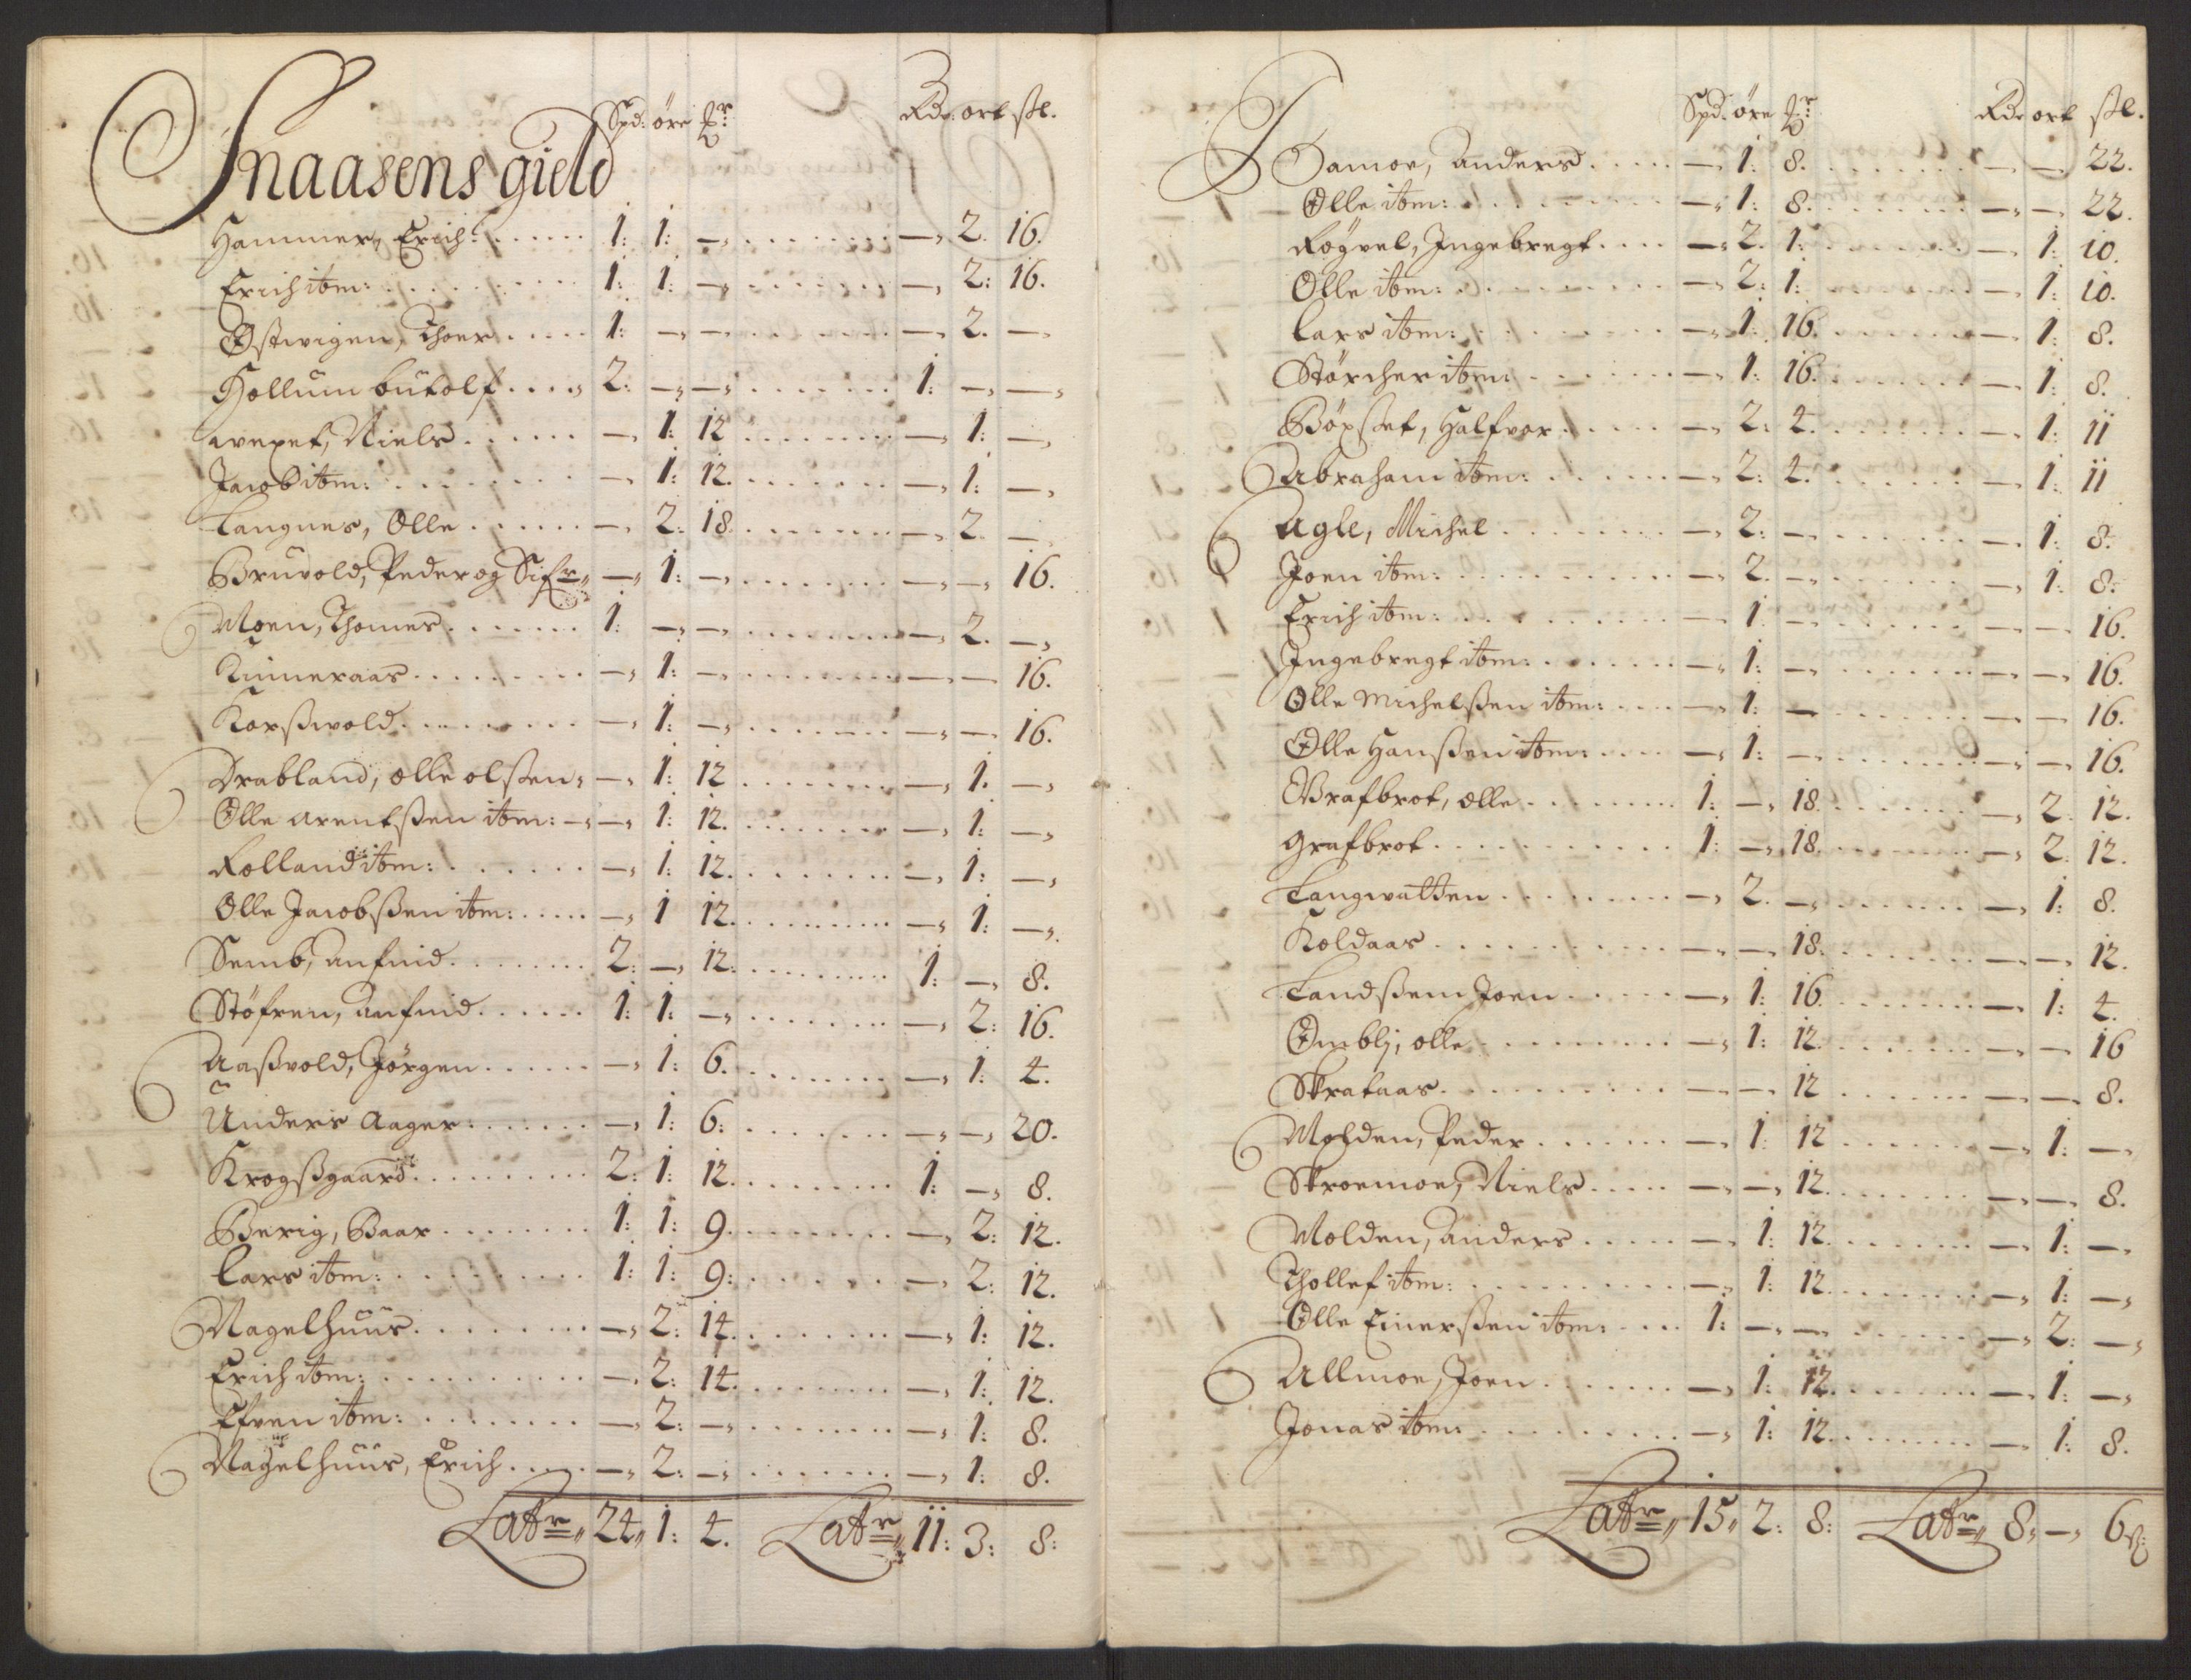 Spd: öre Rdr ort sk.
Snaasens gield
Hammer, Erich: 1: 1: — — 2. 16.
Erich itm: 1: 1: — — 2: 16.
Østvigen, Thoer 1: — — — 2. —
Hollum butolf 2: — — 1: — —
Niels — 1: 12 — 1: —
Jacob itm: — 1: 12. — 1: —
Langnes, Olle — 2: 18. — 2 —
Bruvold, Peder og Sifr — 1: — — — 16.
Moen, Thomes 1: — — — 2. —
Kinneraas — 1: — — — 16.
Korßwold — 1: — — — 16.
Drabland, olle olssen — 1: 12 — 1. —
Olle arentßen itm: — 1: 12. — 1: —
Rolland itm: — 1: 12. — 1: —
Olle Jacobßen itm: — 1 12. — 1: —
Semb, anfind 2: — 12. 1: — 8.
Stöfren, Anfind 1: 1: — — 2: 16.
Aaßvold, Jörgen — 1: 6. — 1: 4.
Anders Aager — 1: 6: — — 20.
Krogßgaard 2: 1: 12. 1: — 8.
Berig, Baar 1: 1: 9. — 2: 12.
Lars itm: 1: 1: 9: — 2: 12.
Nagelhuus — 2: 14. — 1: 12.
Erich itm: — 2: 14. — 1: 12.
Efven itm: — 2: — — 1: 8.
Nagelhuus, Erich — 2: — — 1: 8.
Latr 24 1: 4. Latr 11: 3: 8:
Spd. öre Rdr ort sk.
Damoe, Anders — 1: 8. — — 22.
Olle itm: — 1: 8. — — 22.
Rögvel, Ingebregt — 2. 1: — 1: 10.
Olle itm: — 2: 1: — 1: 10.
Lars itm: — 1: 16. — 1: 8.
Störcher itm: — 1: 16. — 1: 8.
Halfvor — 2: 4. — 1: 11
Abraham itm: — 2: 4. — 1: 11
Agle, Michel — 2: — — 1: 8.
Joen itm: — 2. — — 1: 8:
Erich itm: — 1: — — — 16.
Ingebregt itm: — 1: — — — 16.
Olle Michelßen itm: — 1: — — — 16.
Olle Hanßen itm: — 1: — — — 16.
Grafbrot, olle 1: — 18. — 2. 12.
Grafbrot 1: — 18. — 2: 12.
Langwatten — 2. — — 1: 8.
Koldaas — — 18. — — 12.
Landßem Joen — 1: 16. — 1: 4.
Omblj, olle — 1: 12. — — 16
Skrataas — — 12 — — 8.
Molden, Peder — 1: 12 — 1: —
Skroemoe, Niels — — 12. — — 8.
Molden, Anders — 1: 12. — 1: —
Thollef itm: — 1: 12. — 1: —
Olle Einerßen itm: 1: — — — 2: —
Allmoe, Joen — 1: 12. — 1: —
Jonas itm: — 1: 12. — 1: 8.
Latr 15 2: 8: Latr 8 — 6